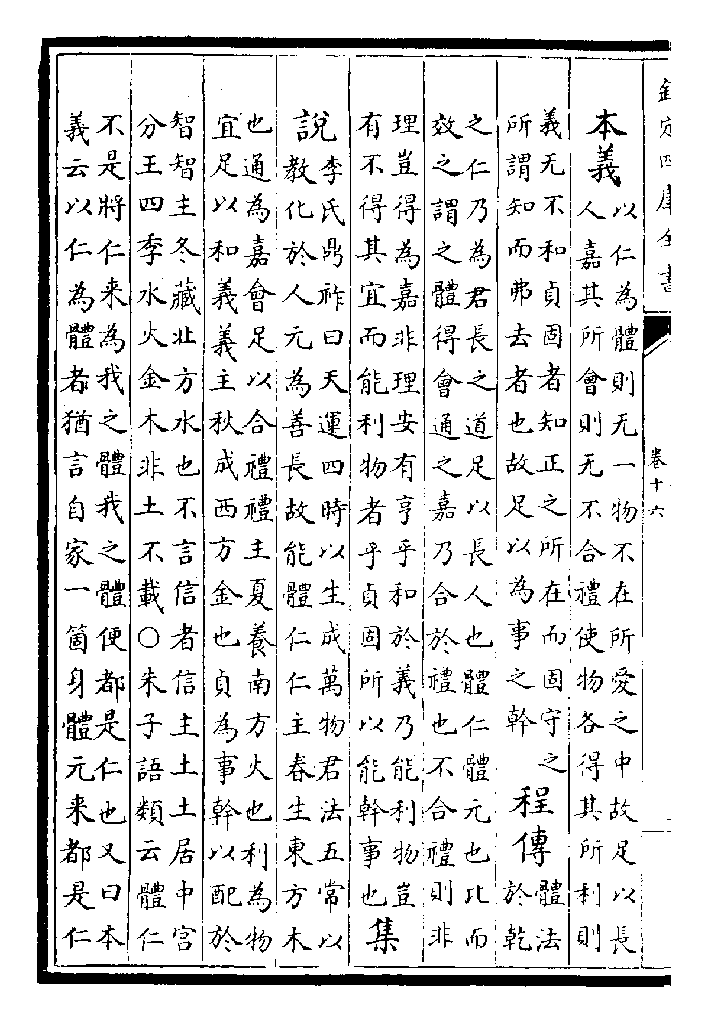 欽定四庫全書
卷十六
本義以仁為體則无一物不在所愛之中故足以長
人嘉其所會則无不合禮使物各得其所利則
義无不和貞固者知正之所在而固守之
所謂知而弗去者也故足以為事之幹
程傳體法
於乾
之仁乃為君長之道足以長人也體仁體元也比而
效之謂之體得會通之嘉乃合於禮也不合禮則非
理豈得為嘉非理安有亨乎和於義乃能利物豈
有不得其宜而能利物者乎貞固所以能幹事也
集
說李氏鼎祚曰天運四時以生成萬物君法五常以
教化於人元為善長故能體仁仁主春生東方木
也通為嘉會足以合禮禮主夏養南方火也利為物
宜足以和義義主秋成西方金也貞為事幹以配於
智智主冬藏北方水也不言信者信主土土居中宮
分王四季水火金木非土不載〇朱子語類云體仁
不是將仁来為我之體我之體便都是仁也又曰本
義云以仁為體者猶言自家一箇身體元来都是仁